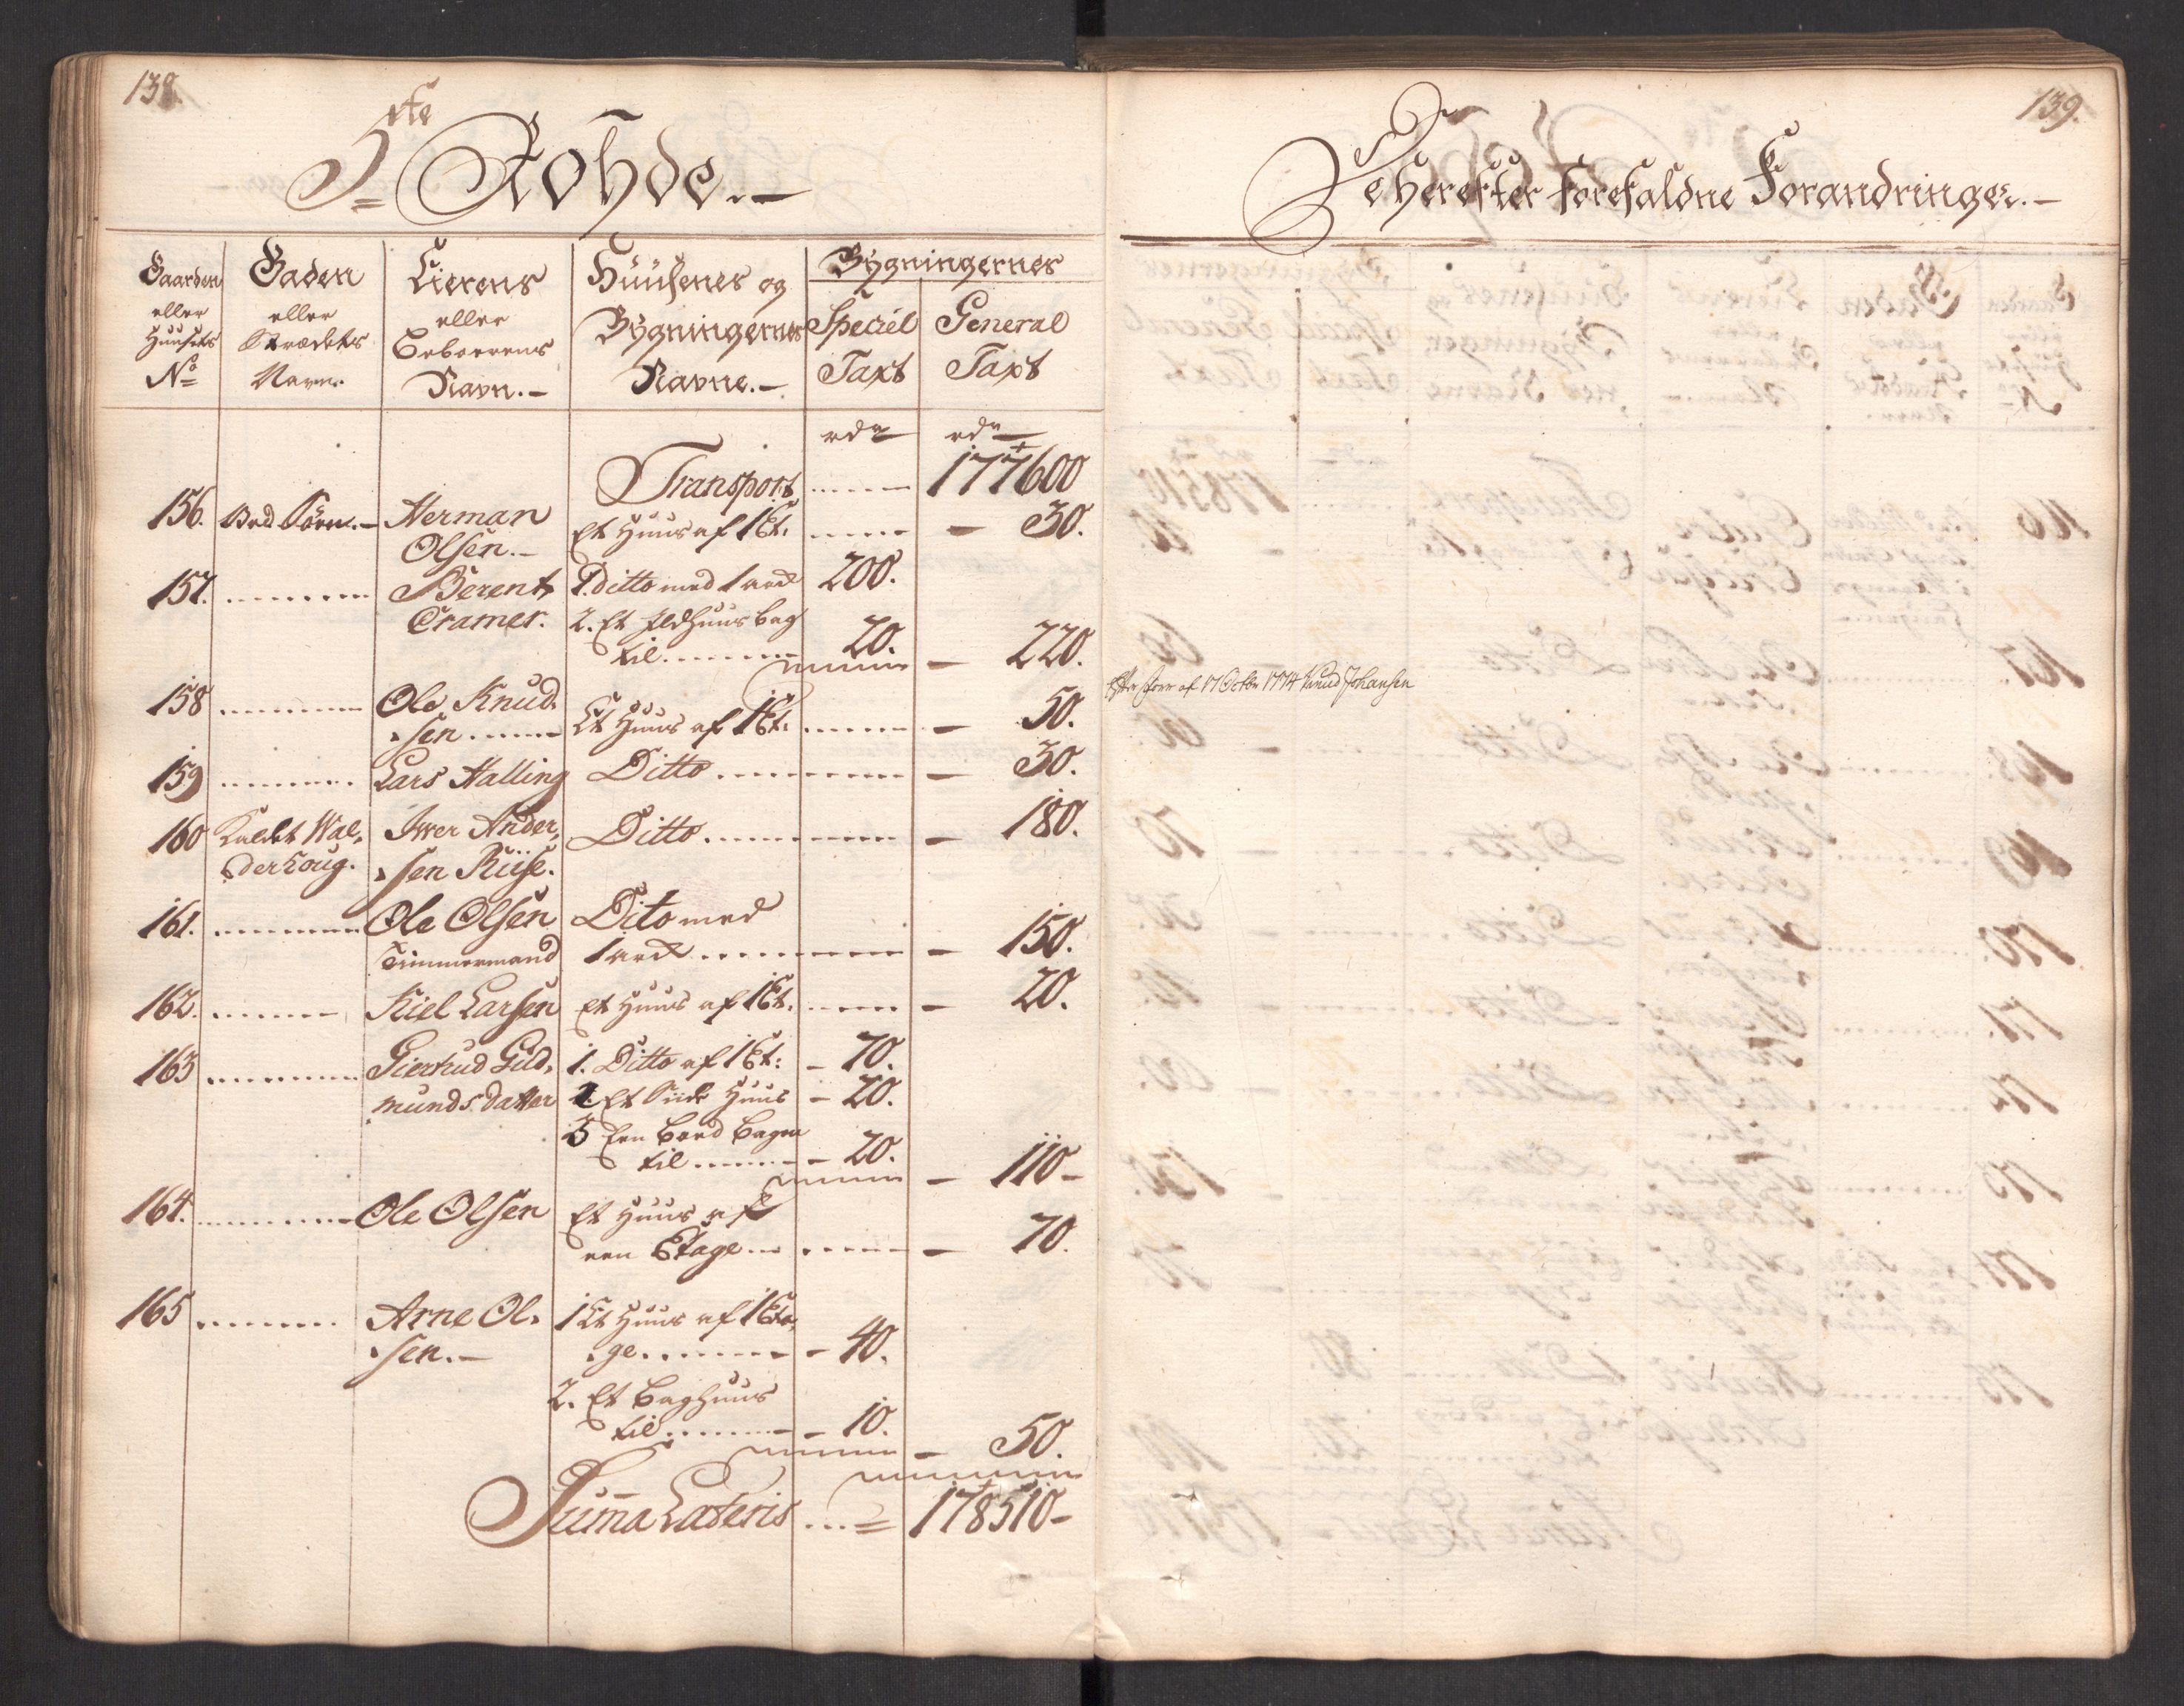 138.
5te Rohde.-
Gaarden Gaden Eierens Huusenes og Bygningernes
eller eller eller Bygningernes Speciel General
Huusets Strædets Beboerens Navne.- Taxt Taxt
No Navn. Navn.-
rdr rdr
Transport ...... 177600
156. Ved Søen.- Herman Et Huus af 1 Et. ..... - 30.
Olsen.-
157. ........ Berent 1. Ditto med 1 ark 200.
Cramer. 2. Et Ildhuus bag
til....... 20. - 220.
158 ........ Ole Knud-
sen ...... Et Huus af 1 Et. ...... - 50.
159 ....... Lars Halling Ditto.......... - 30.
160 Kaldet Wal- Iver Ander- Ditto.......... - 180.
derhoug. sen Riise.
161. ........ Ole Olsen Dito med
Timmermand 1 ark .......... - 150.
162. ....... Kiel Larsen Et Huus af 1 Et. ..... - 20.
163 ........ Giertrud Gud- 1. Ditto af 1 Et: - 70.
munds datter 2. Et Siide Huus - 20.
3 Een Boed bagen
til ...... - 20. - 110-
164. ......... Ole Olsen Et Huus af
een Etage ... ...... - 70.
165 ....... Arne Ol- 1 Et Huus af 1 Eta-
sen.- ge........ - 40.
2. Et Baghuus
til....... - 10. - 50.
Summa Lateris ... = 178510-
139.
De herefter forefaldne Forandringer.-
af 17 Octbr 1774 Knud Johansen